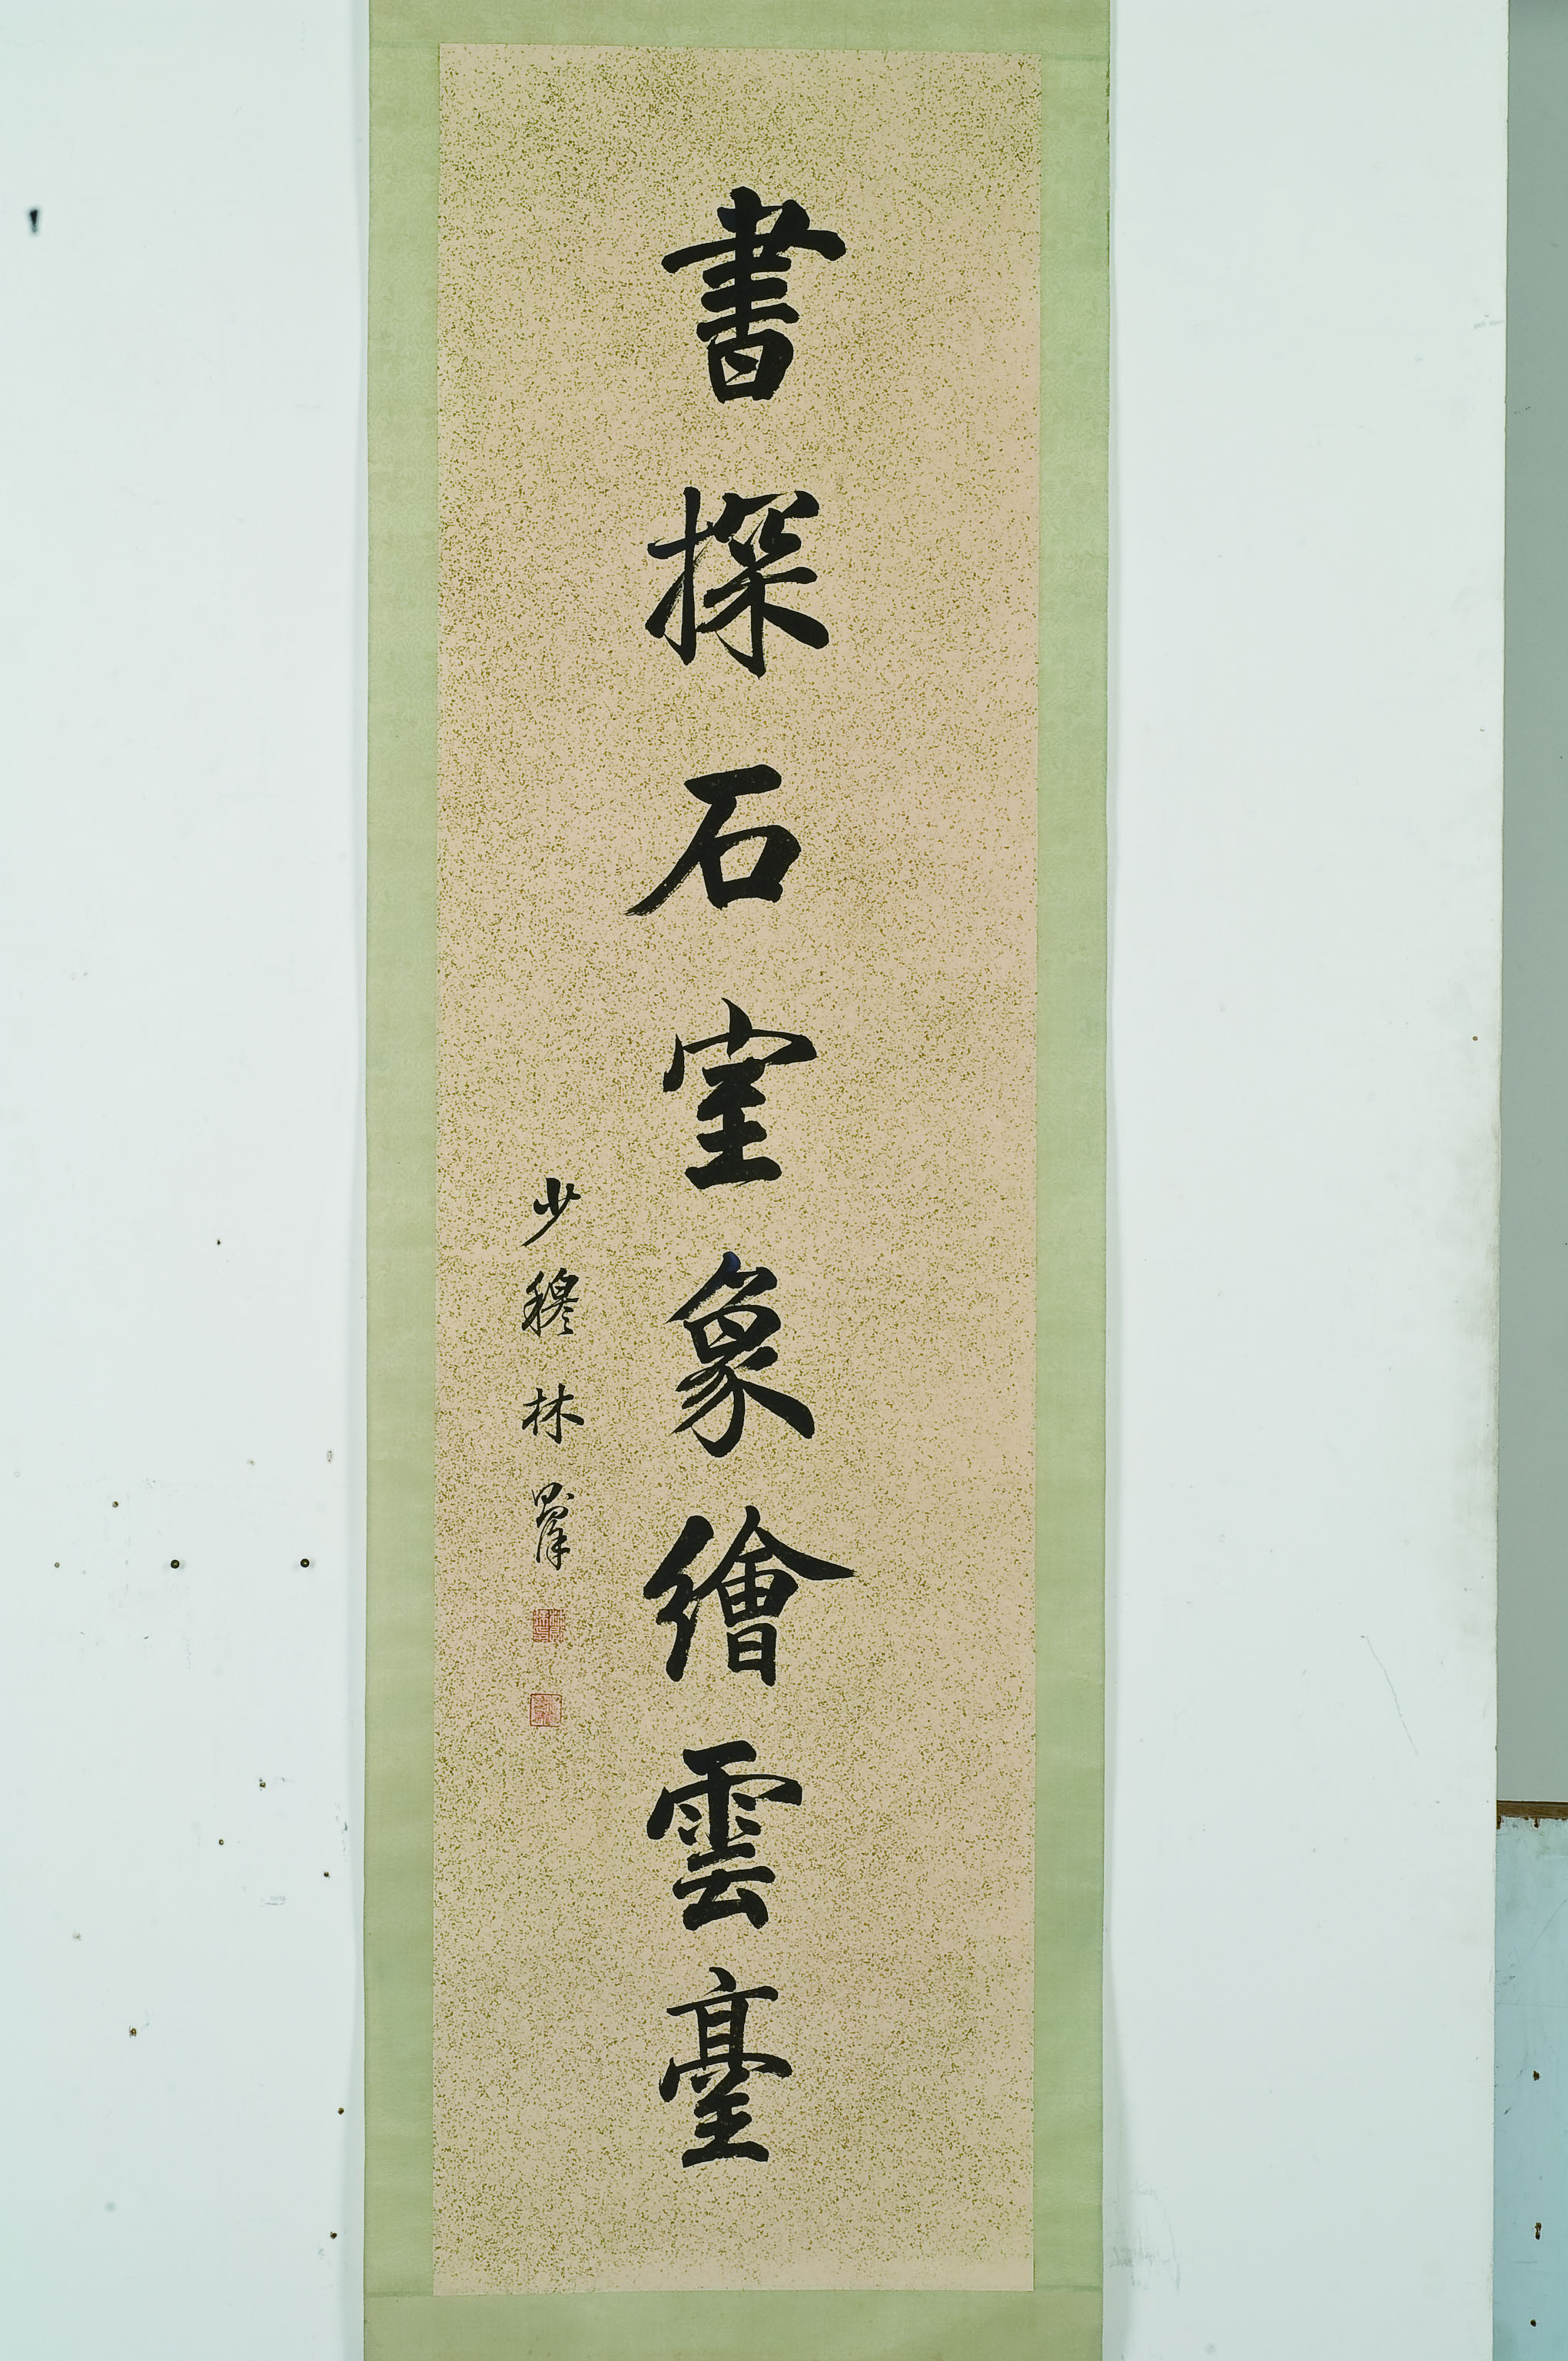 書探石室象繪雲臺
少穆林則徐